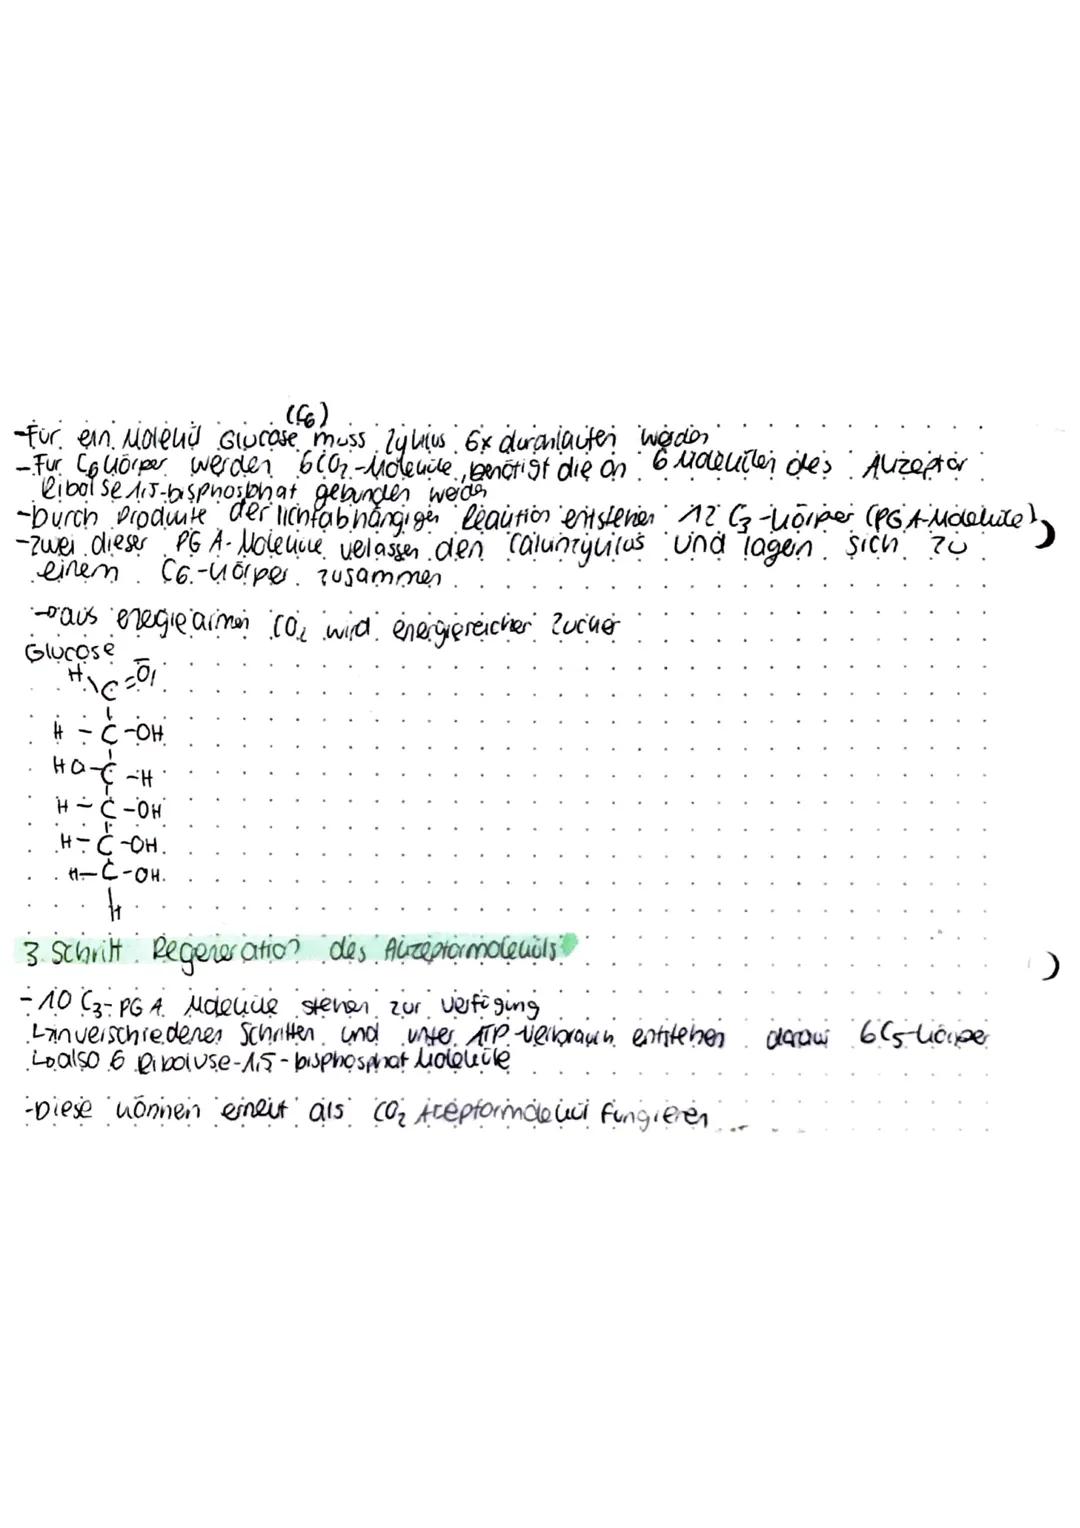 (C6)
-Für ein Molekül Glucose muss Zyklus 6x durchlaufen werden
-Für C6 Körper werden 6CO2-Moleküle benötigt die an 6 Molekülen des Akzeptor
Ribolse 1,5-bisphosphat gebunden werden
-Durch Produkte der lichtabhängigen Reaktion entstehen 12 C3-Körper (PGA-Moleküle)
-Zwei dieser PGA-Moleküle velassen den Calvinzyklus und lagen sich zu
einem C6-Körper zusammen
→aus energiearmen CO2 wird energiereicher Zucker
Glucose
H\C=O|
H-C-OH
HO-C-H
H-C-OH
H-C-OH
H-C-OH
H
3. Schritt Regeneration des Akzeptormoleküls
-10 C3-PGA Moleküle stehen zur Verfügung
↳in verschiedenen Schritten und unter ATP-Verbrauch entstehen daraus 6C5-Körper
↳also 6 Riboluse-1,5-bisphosphat Moleküle
-Diese können erneut als CO2 Akzeptormolekül fungieren